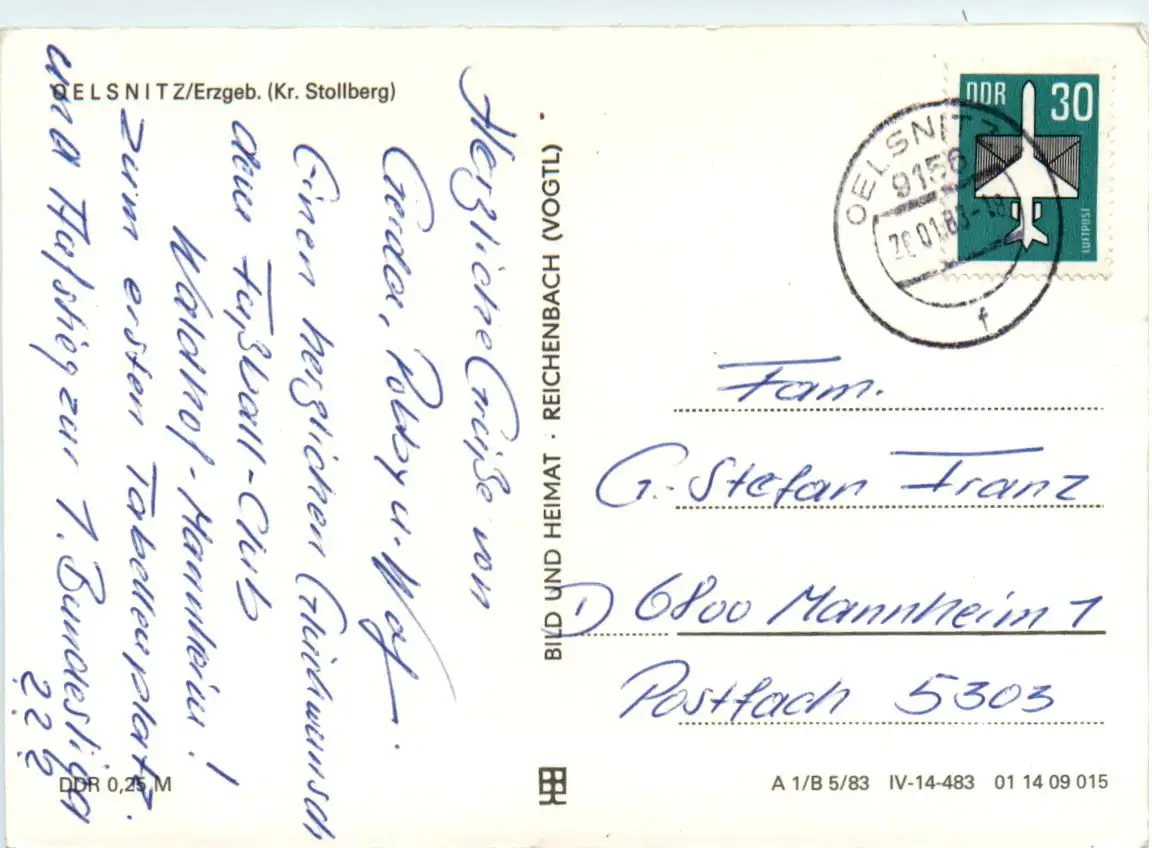 OELSNITZ/Erzgeb. (Kr. Stollberg)
Herzliche Grüße von
Gerda, Pobby u. Wolf.
Einen herzlichen Glückwunsch
dem Fußball-Club
Waldhof-Mannheim!
Zum ersten Tabellenplatz.
und Aufstieg zur 1. Bundesliga
???
DDR 0,25 M
BILD UND HEIMAT · REICHENBACH (VOGTL)
DDR 30
LUFTPOST
OELSNITZ
9156
20.01.83-18
f
Fam.
G.-Stefan Franz
D 6800 Mannheim 1
Postfach 5303
A 1/B 5/83 IV-14-483 01 14 09 015